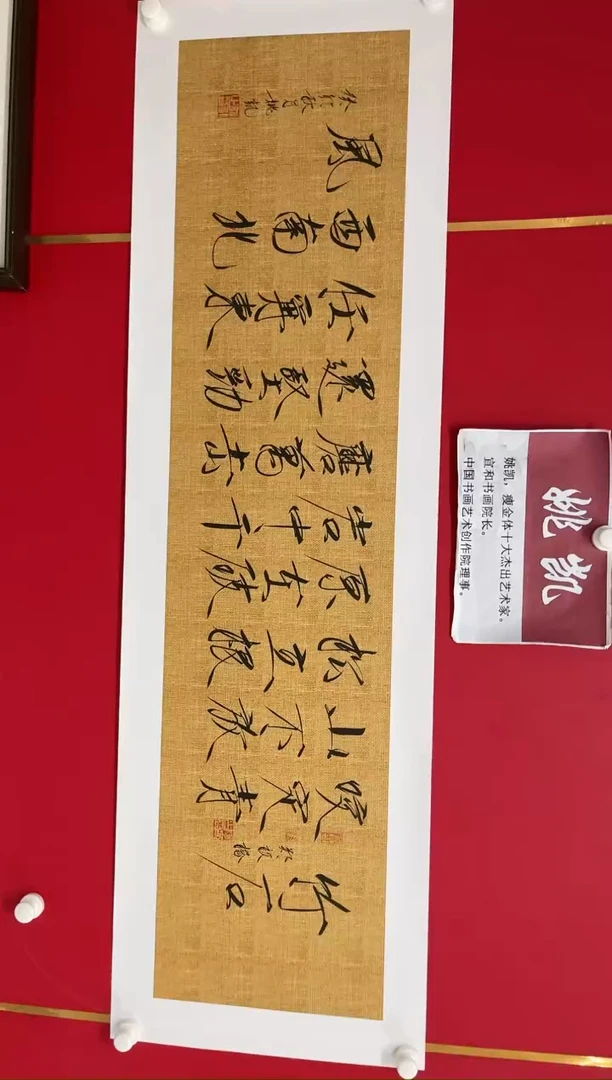 竹石
鄭板橋
咬定青
山不放
松立根
原在破
岩中千
磨萬击
還堅勁
任爾東
西南北
風
癸卯秋月姚凱
姚凯
姚凯，瘦金体十大杰出艺术家。
宣和书画院长。
中国书画艺术创作院理事。